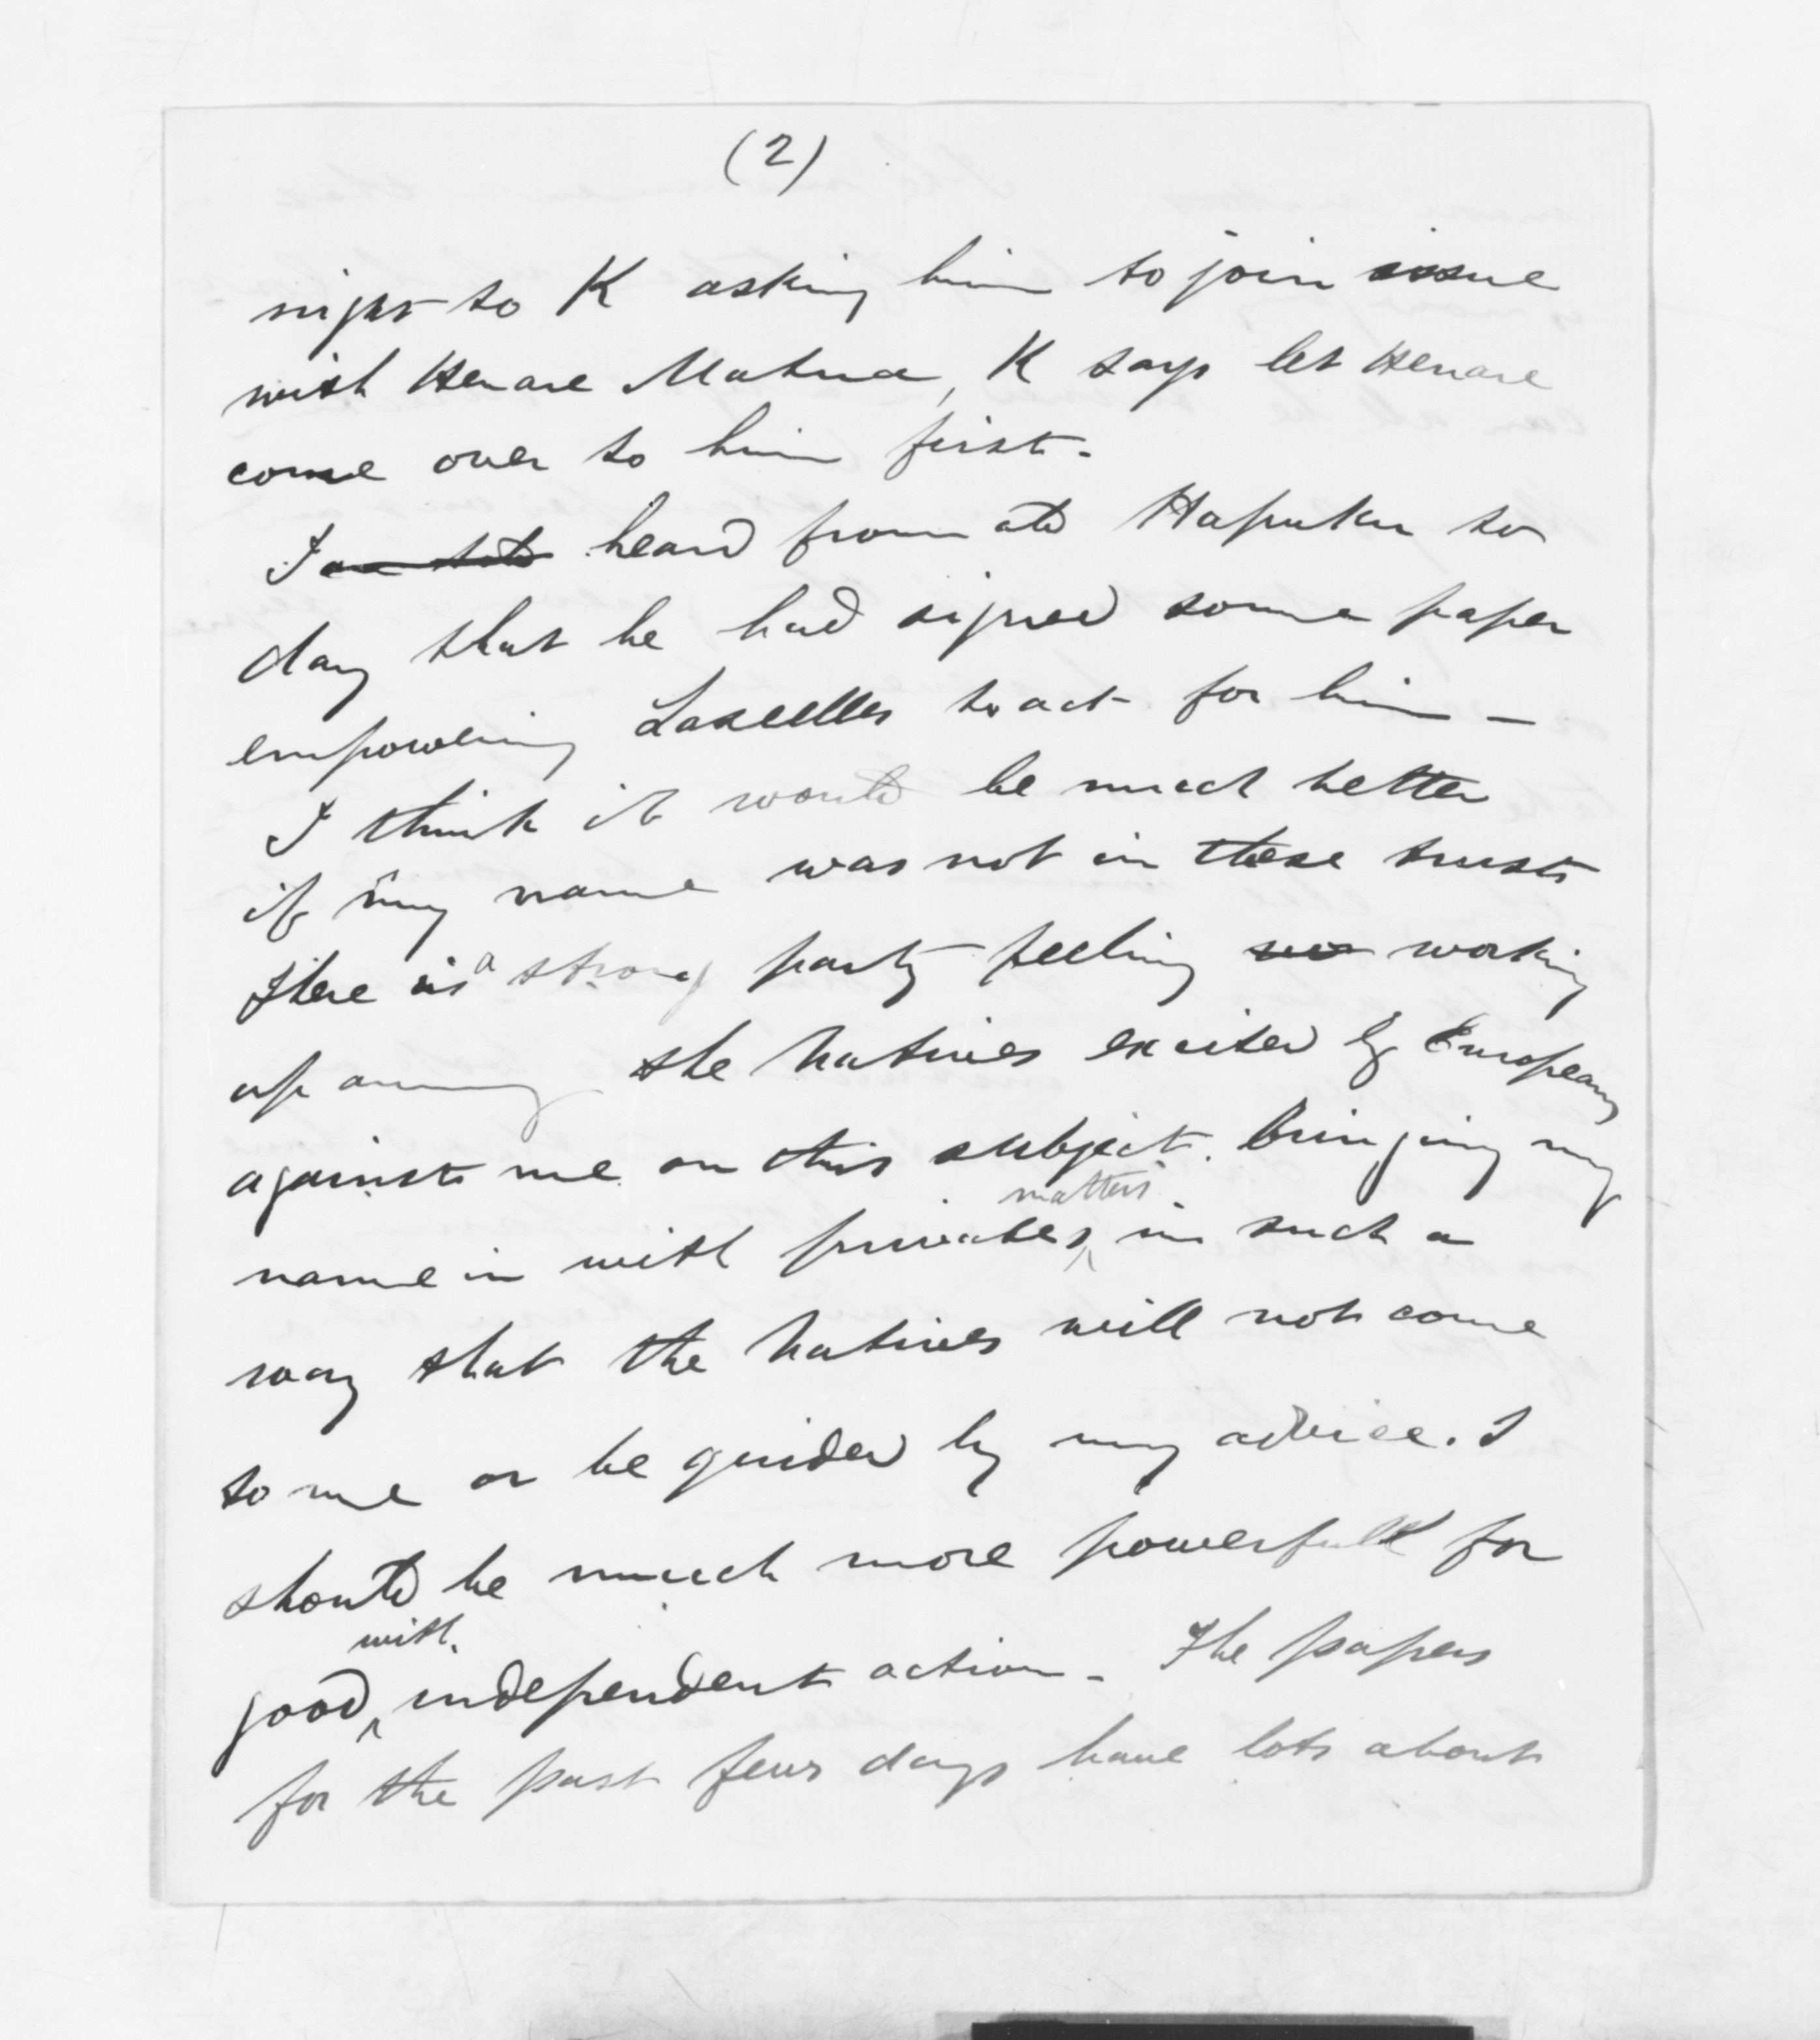 (2)
night to K asking him to join issue
with Henare Matua, K says let Henare
come over to him first.
I am told heard from old Hapuku to
day that he had signed some paper
empowering Lascelles to act for him -
I think it would be much better
if my name was not in these trusts
There is a strong party feeling working
up among the Natives excited by Europeans
against me on this subject. bringing my
matters
name in with privates, in such a
way that the Natives will not come
to me or be guided by my advice. I
should be much more powerfull for
with
good independent action - The papers
for the past few days have lots about